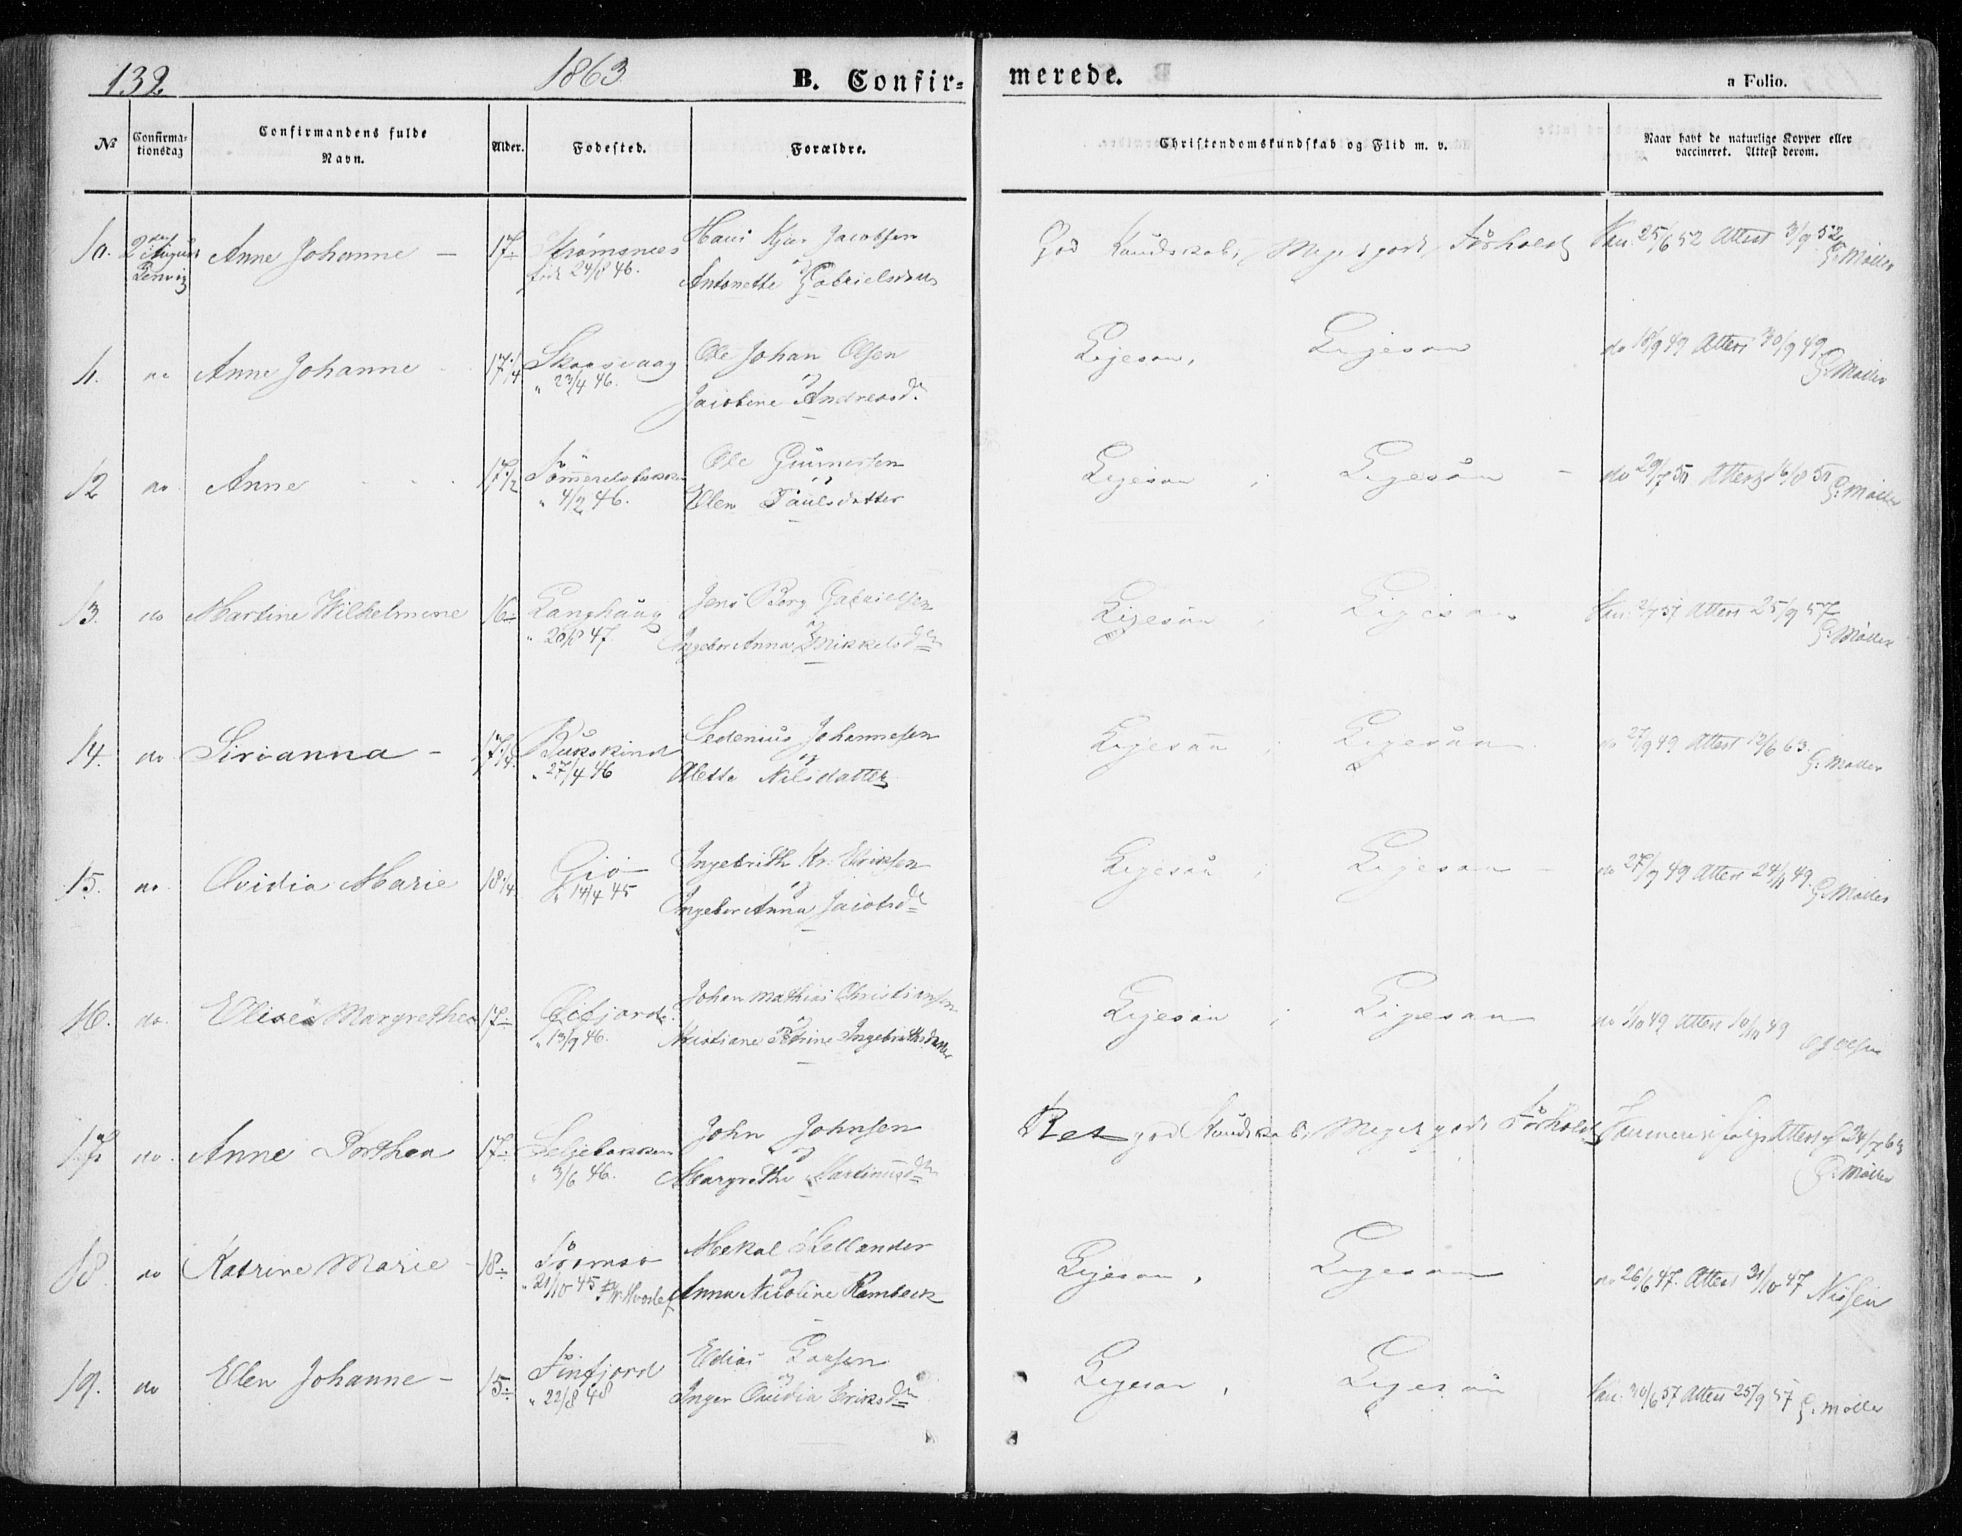 132.
1863
B. Confir=
merede.
a Folio.
No
Confirma-
tionsdag
Confirmandens fulde
Navn.
Alder.
Fødested.
Forældre.
Christendomskundskab og Flid m. v.
Naar havt de naturlige Kopper eller
vaccineret. Attest derom.
10. 2den August Anne Johanne — 17 Strømsnes Hans Kjær Jacobsen God Kundskab, Meget godt Forhold Vac: 25/6 52 Attest 3/9 52
født 24/8 46. og Antonette Gabrielsdr G: Møller
11. do Anne Johanne 17 1/4 Ole Johan Olsen Ligesaa, Ligesaa do 18/9 49 Attest 30/9 49
" 23/4 46. og Jacobine Andreasd. G: Møller
12 do Anne 17 1/2 Ole Gunnersen Ligesaa, Ligesaa — do 29/7 50 Attest 16/8 50
" 4/2 46. og Elen Paulsdatter G: Møller
13. do Martine Wilhelmine 16 Langhaug Jens Berg Gabrielsen Ligesaa, Ligesaa Vac: 2/7 57 Attest 25/9 57
" 20/8 47. og Ingebor Anna Mikkelsd G: Møller
14. do Sirianna — 17 1/4 Buskskind Sedenius Johannesen Ligesaa, Ligesaa do 27/9 49 Attest 13/6 63
" 27/4 46 og Aletta Nilsdatter G: Møller
15. do Ovidia Marie 18 1/4 Ingebrith Kr. Eriksen Ligesaa, Ligesaa — do 27/9 49 Attest 24/11 49
" 14/4 45 og Ingebor Anna Jacobsd G: Møller
16. do. Elisea Margrethe 17 Johan Mathias Christiansen Ligesaa, Ligesaa do 1/10 49 Attest 10/10 49
" 13/9 46. og Kristiane Petrine Ingebrithsdatter
17. do. Anne Dorthea 17 Seljebakken John Johnsen Ret god Kundskab, Meget godt Forhold Attest af 24/7 63
" 3/6 46. og Margrethe Martinusd G: Møller
18 do Katrine Marie — 18 Tromsø Mekal Hellander Ligesaa, Ligesaa do 26/6 47. Attest 31/10 47
" 21/10 45 og Anna Nicoline Rambeck Nissen
19. do Elen Johanne — 15 Finfjord Edias Larsen Ligesaa, Ligesaa Vac: 30/6 57 Attest 25/9 57
" 22/8 48 og Inger Ovidia Eriksd G: Møller